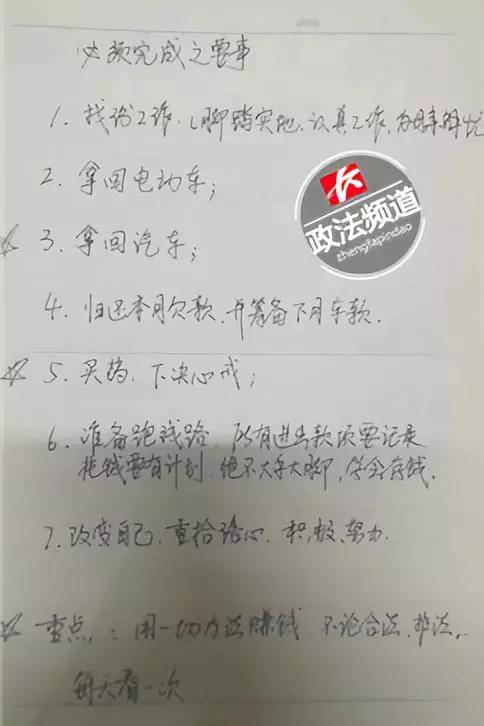 必须完成之要事
1. 找份工作，脚踏实地，认真工作，为母亲解忧
2. 拿回电动车；
政法频道
zhengfapindao
☆ 3. 拿回汽车；
4. 归还本月欠款，并筹备下月车款.
☆ 5. 买药，下决心戒；
6. 准备跑线路，所有进出款项要记录
花钱要有计划，绝不大手大脚，学会存钱.
7. 改变自己，重拾信心，积极、努力.
☆ 重点：用一切方法赚钱 不论合法、非法，
每天看一次